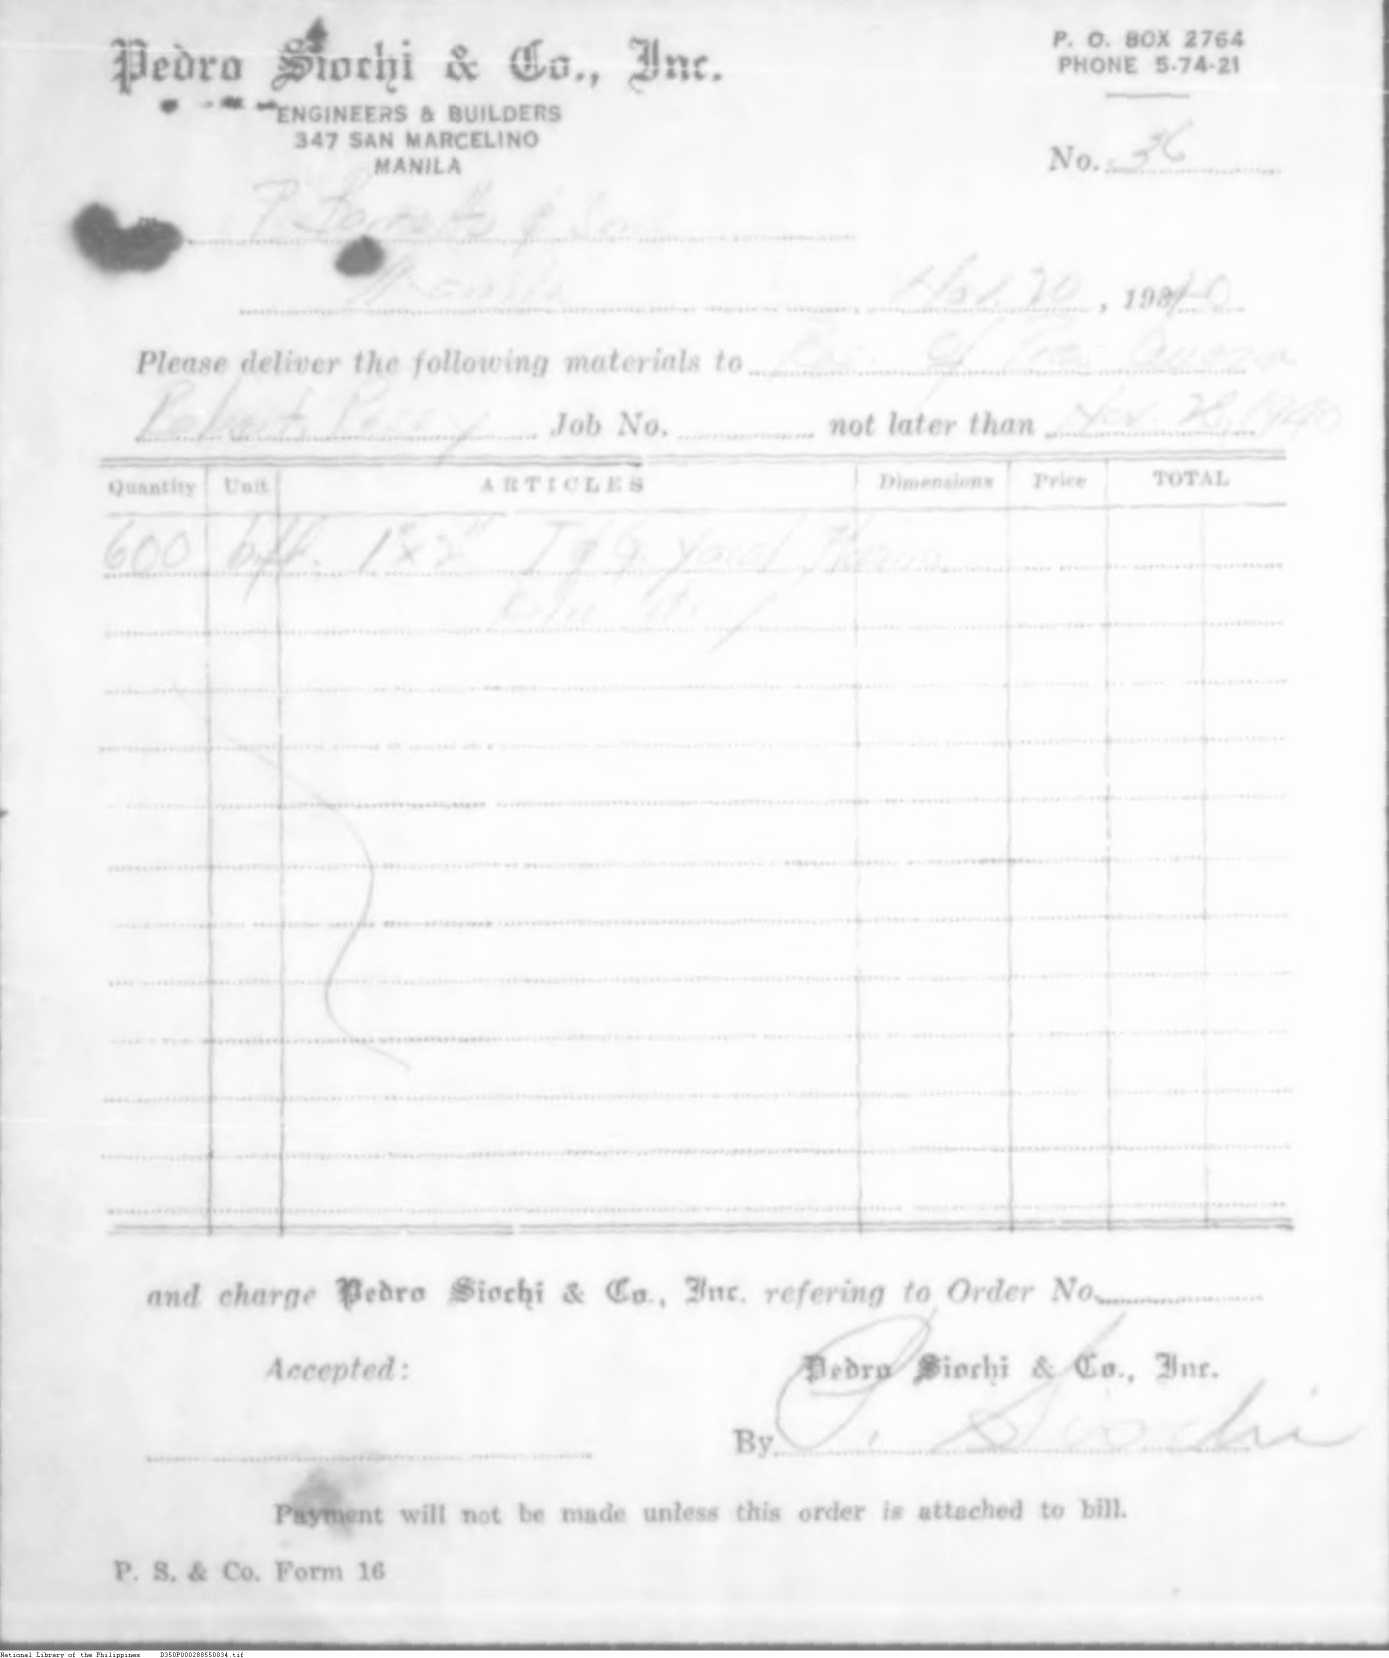 Pedro Siochi & Co., Inc.
ENGINEERS & BUILDERS
347 SAN MARCELINO
MANILA
P. O. BOX 2764
PHONE 5-74-21
No. 36
Manila Nov. 20, 1940
Please deliver the following materials to
Job No. not later than Nov. 28, 1940
Quantity Unit ARTICLES Dimensions Price TOTAL
600 b.ft. 1" x 2" T & G Yacal
and charge Pedro Siochi & Co., Inc. refering to Order No.
Accepted:
Pedro Siochi & Co., Inc.
By P. Siochi
Payment will not be made unless this order is attached to bill.
P. S. & Co. Form 16
National Library of the Philippines D350P000288550034.tif